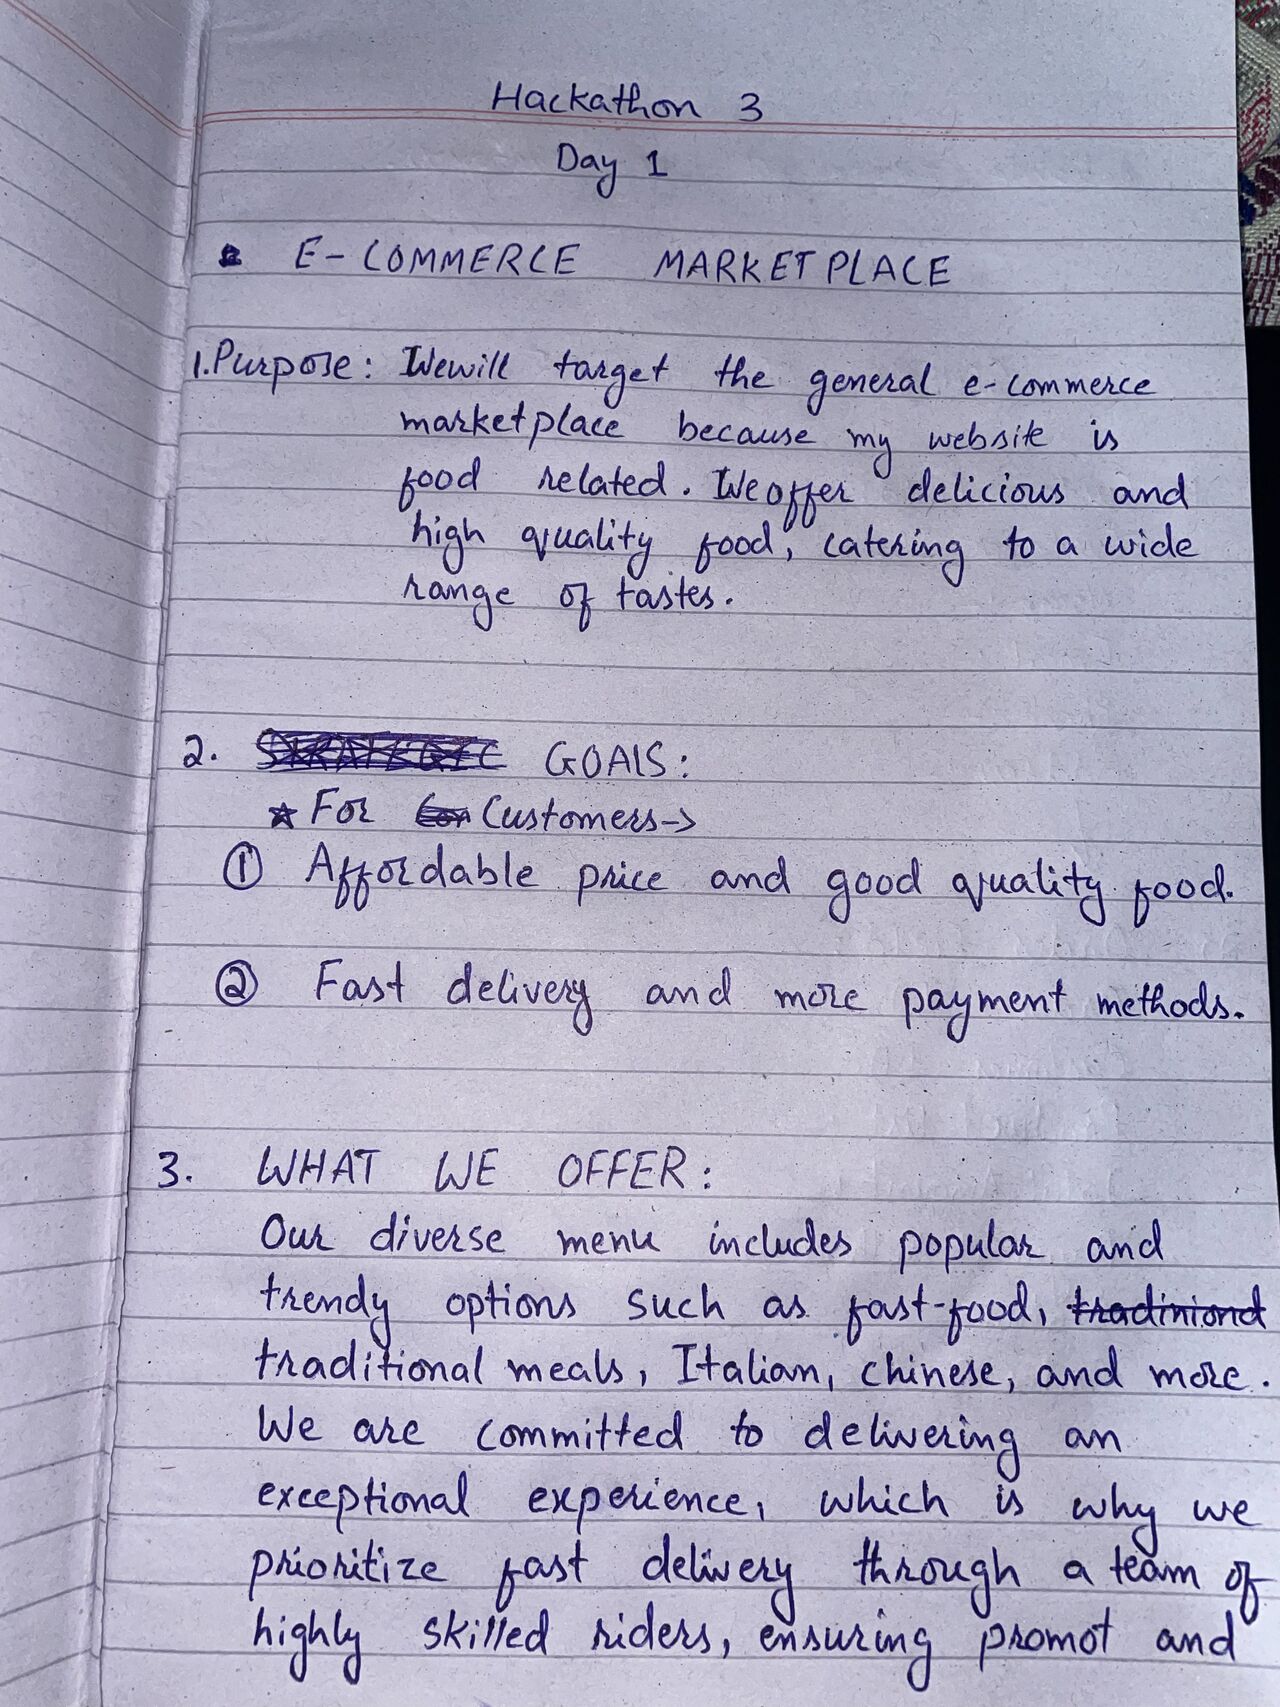 Hackathon 3
Day 1
E-COMMERCE MARKETPLACE
1. Purpose: We will target the general e-commerce
marketplace because my website is
food related. We offer delicious and
high quality food, catering to a wide
range of tastes.
2. STRATEGIC GOALS:
★ For Customers→
① Affordable price and good quality food.
② Fast delivery and more payment methods.
3. WHAT WE OFFER:
Our diverse menu includes popular and
trendy options such as fast-food, tradiniond
traditional meals, Italian, chinese, and more.
We are committed to delivering an
exceptional experience, which is why we
prioritize fast delivery through a team of
highly skilled riders, ensuring promot and